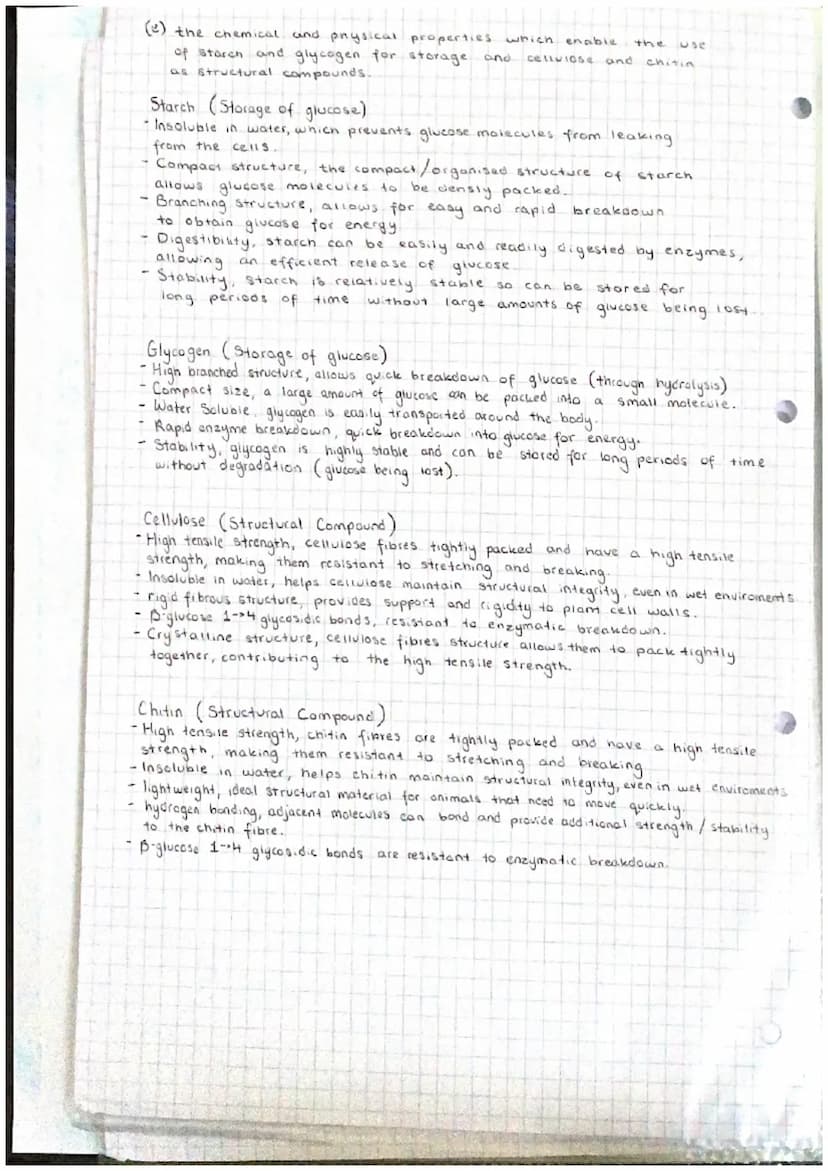 (e) the chemical and physical properties which enable the use
of starch and glycogen for storage and cellulose and chitin
as structural compounds.
Starch (Storage of glucose)
- Insoluble in water, which prevents glucose molecules from leaking
from the cells.
- Compact structure, the compact/organised structure of starch
allows glucose molecules to be densly packed.
- Branching structure, allows for easy and rapid breakdown
to obtain glucose for energy.
- Digestibility, starch can be easily and readily digested by enzymes,
allowing an efficient release of glucose
- Stability, starch is relatively stable so can be stored for
long periods of time without large amounts of glucose being lost.
Glycogen (Storage of glucose)
- High branched structure, allows quick breakdown of glucose (through hydrolysis)
- Compact size, a large amount of glucose can be packed into a small molecule.
- Water Soluble, glycogen is easily transported around the body.
- Rapid enzyme breakdown, quick breakdown into glucose for energy.
- Stability, glycogen is highly stable and can be stored for long periods of time
without degradation (glucose being lost).
Cellulose (Structural Compound)
- High tensile strength, cellulose fibres tightly packed and have a high tensile
strength, making them resistant to stretching and breaking.
- Insoluble in water, helps cellulose maintain structural integrity, even in wet enviroments
- rigid fibrous structure, provides support and rigidity to plant cell walls.
- β-glucose 1->4 glycosidic bonds, resistant to enzymatic breakdown.
- Crystalline structure, cellulose fibres structure allows them to pack tightly
together, contributing to the high tensile strength.
Chitin (Structural Compound)
- High tensile strength, chitin fibres are tightly packed and have a high tensile
strength, making them resistant to stretching and breaking
- Insoluble in water, helps chitin maintain structural integrity, even in wet enviroments
- lightweight, ideal structural material for animals that need to move quickly.
- hydrogen bonding, adjacent molecules can bond and provide additional strength / stability
to the chitin fibre.
- β-glucose 1->4 glycosidic bonds are resistant to enzymatic breakdown.